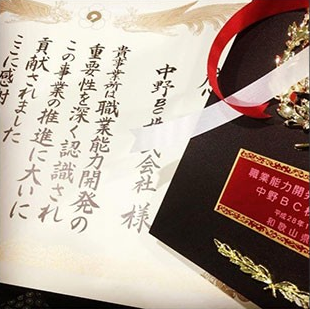 中野BC株式会社 様
貴事業所は職業能力開発の
重要性を深く認識され
この事業の推進に大いに
貢献されました
ここに感謝
職業能力開発
中野BC
平成28年1
和歌山県